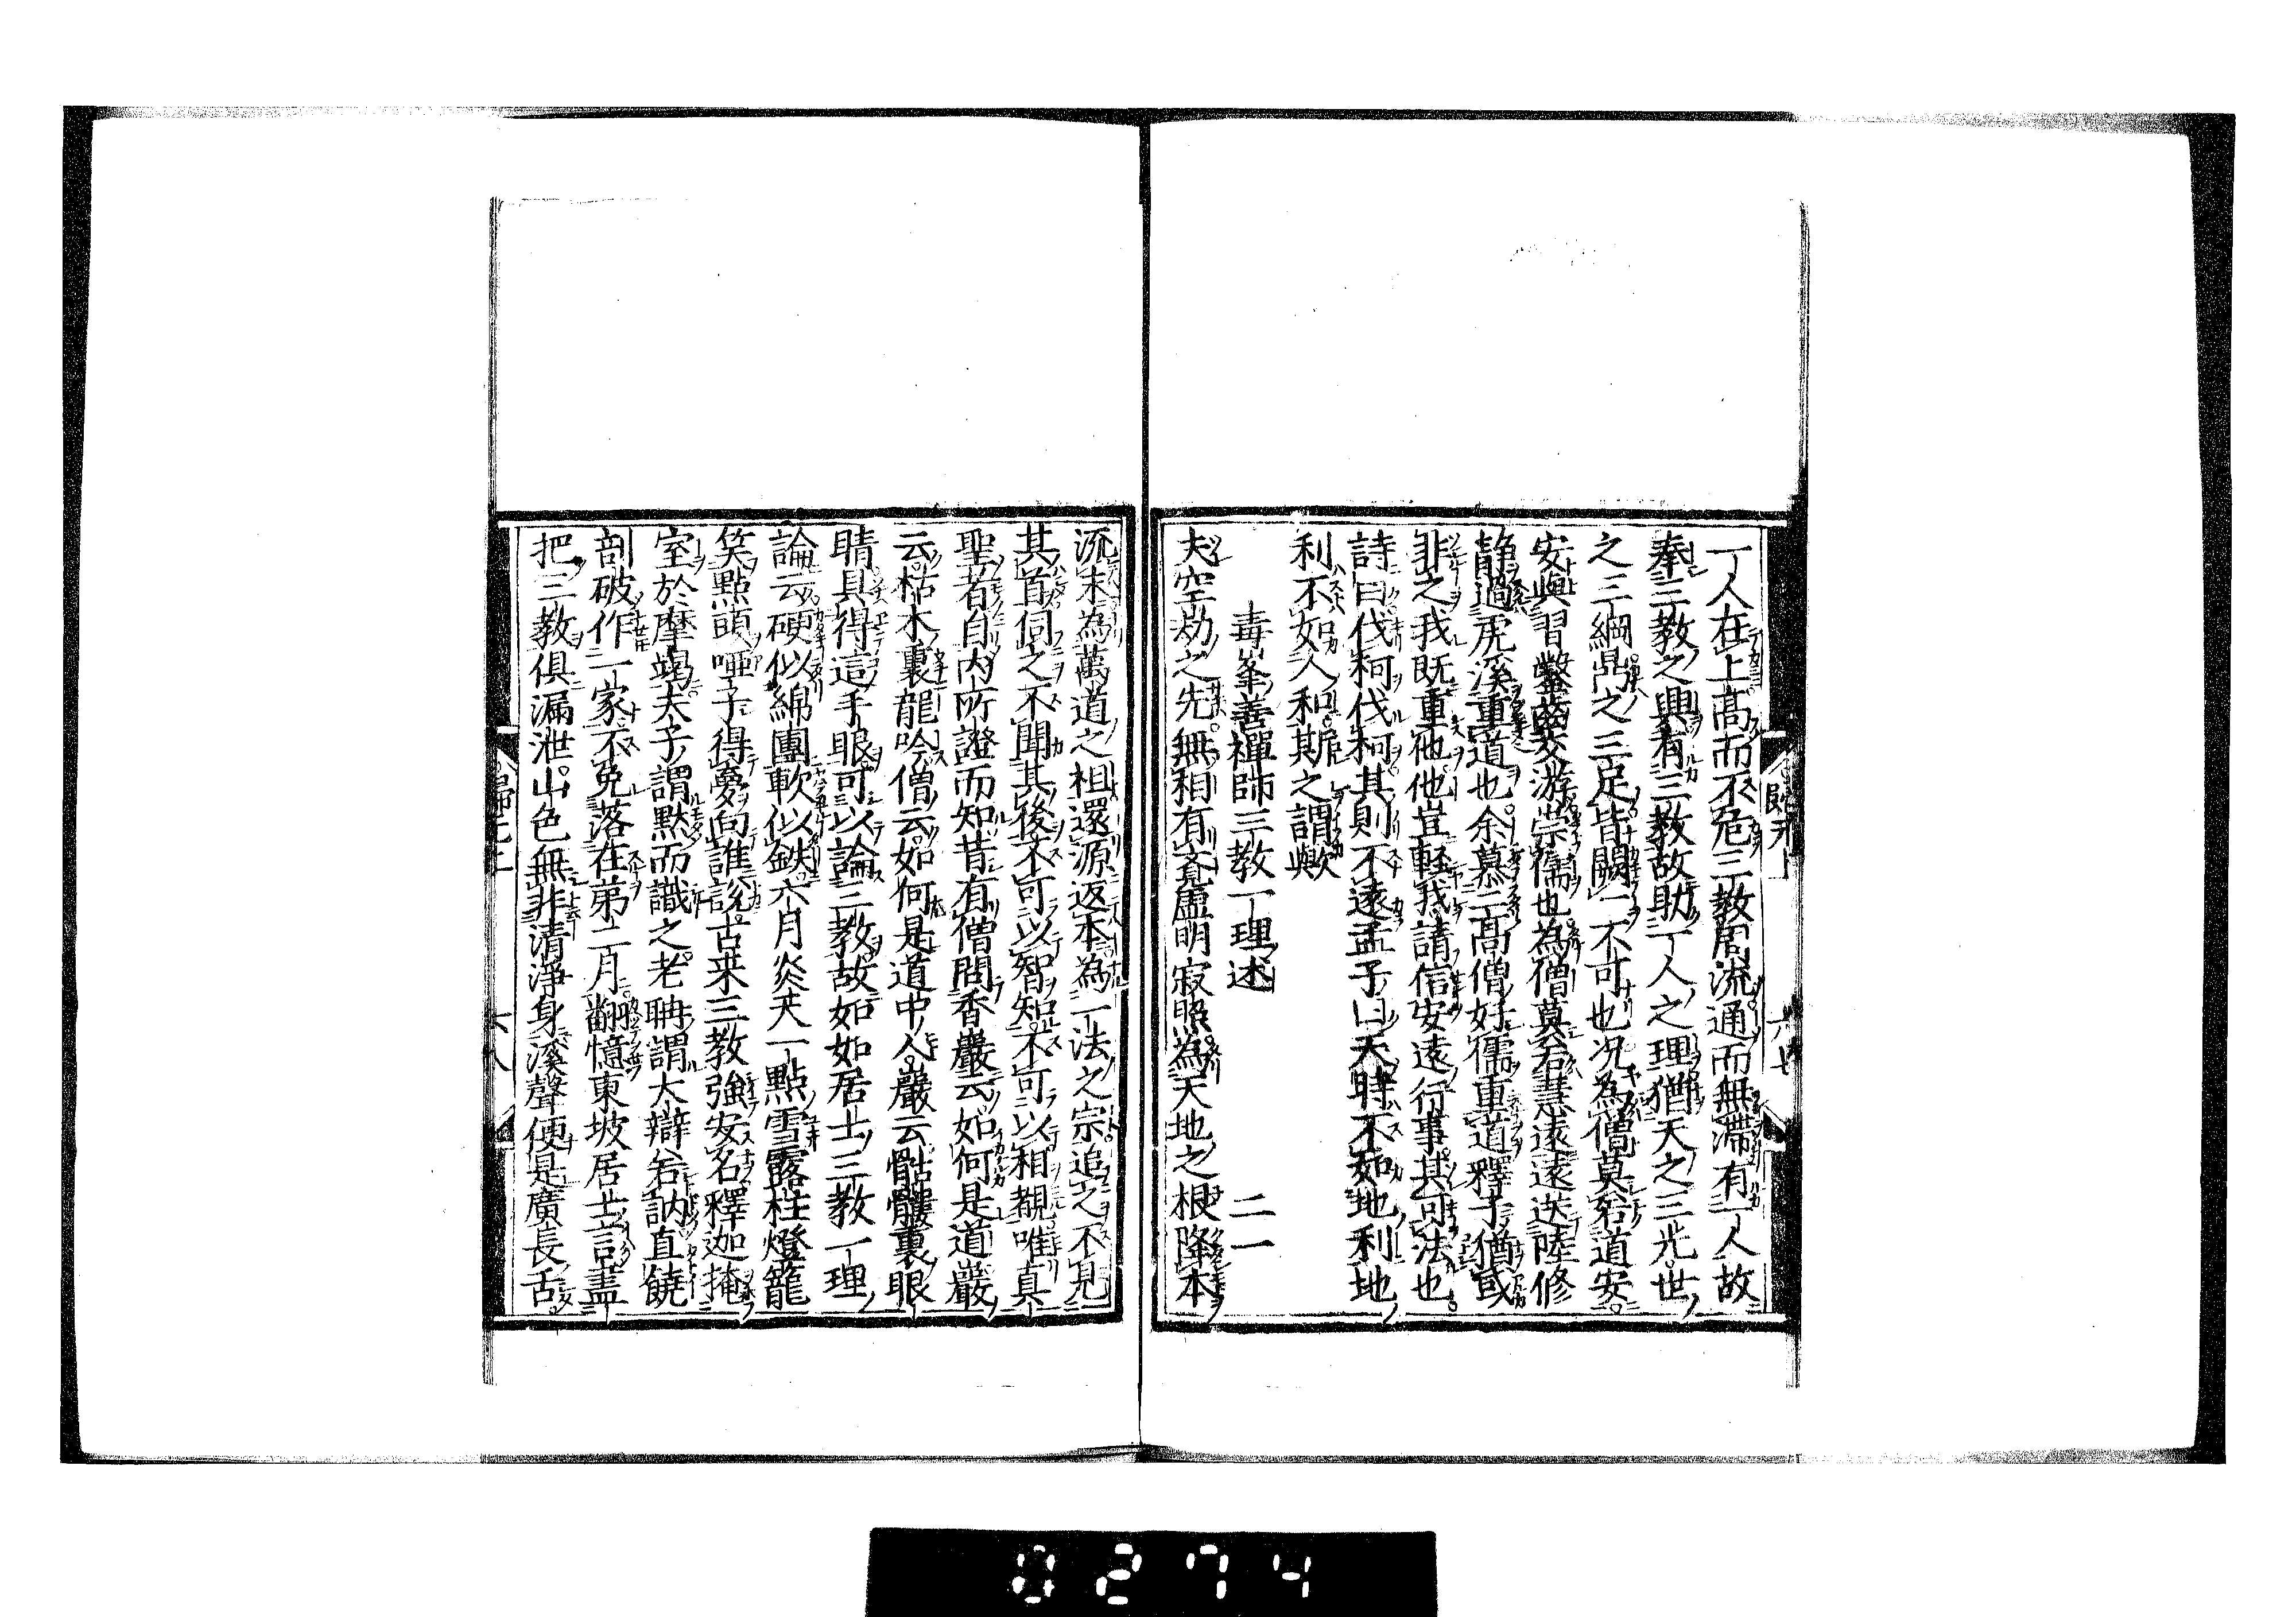 一人在上高而不危三教周流通而無滯有一人故
奉三教之興有三教故助一人之理猶天之三光世
之三綱鼎之三足皆闕一不可也況為僧莫若道安
安與習鑿齒交游崇儒也為僧莫若慧遠遠送陸修
靜過虎溪重道也余慕二高僧好儒重道釋子猶或
非之我既重他他豈輕我請信安遠行事其可法也
詩曰伐柯伐柯其則不遠孟子曰天時不如地利地
利不如人和斯之謂歟
毒峯善禪師三教一理述 二一
夫空劫之先無相有音虛明寂照為天地之根降本
流末為萬道之祖還源返本為一法之宗追之不見
其首伺之不聞其後不可以智知不可以相覩唯真
聖者自內所證而知昔有僧問香嚴云如何是道嚴
云枯木裏龍吟僧云如何是道中人嚴云髑髏裏眼
睛具得這手眼可以論三教故如如居士三教一理
論云硬似綿團軟似鉄六月炎天一點雪露柱燈籠
笑點頭啞子得夢向誰說古来三教強安名釋迦掩
室於摩竭夫子謂黙而識之老聃謂大辯若訥直饒
剖破作一家不免落在第二月翻憶東坡居士言盡
把三教俱漏泄山色無非清淨身溪聲便是廣長舌
六七
六八
0274